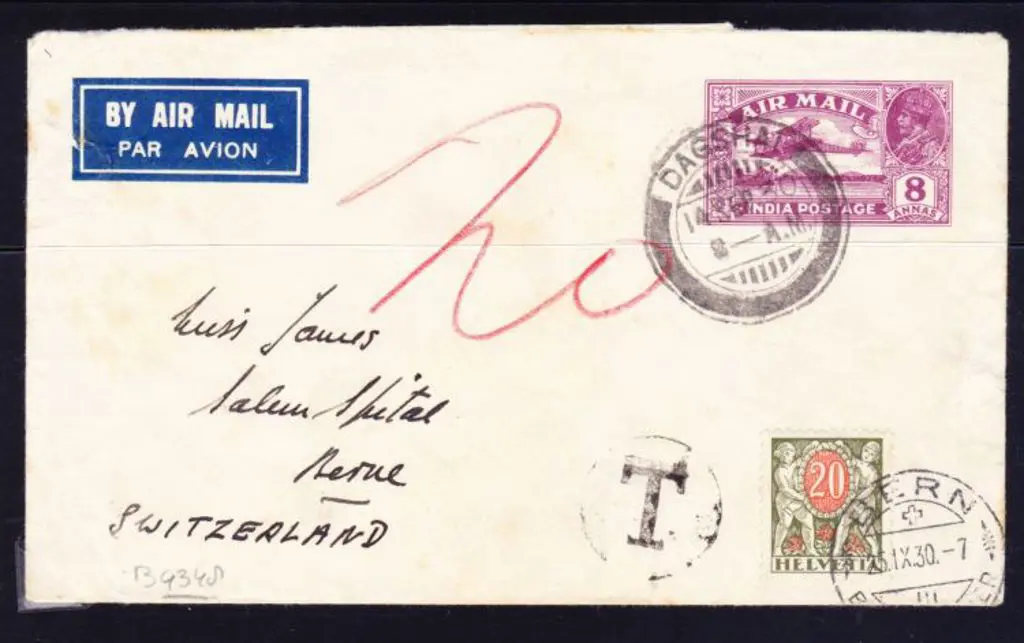 BY AIR MAIL
PAR AVION
AIR MAIL
INDIA POSTAGE
8
ANNAS
DAGSHAI
14 SEP 30
8 — A.M.
20
Miss James
Salem Spital
Berne
SWITZERLAND
T
20
HELVETIA
BERN
25.IX.30.-7
III